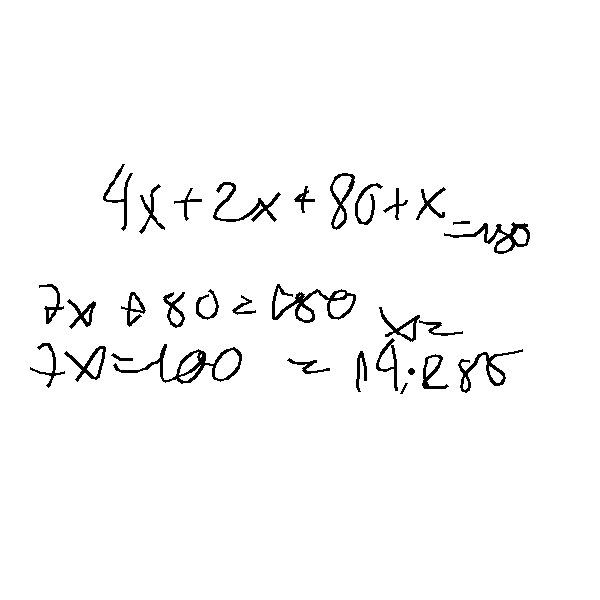 4x+2x+80+x =180
7x+80=180
7x=100 x= = 14.285